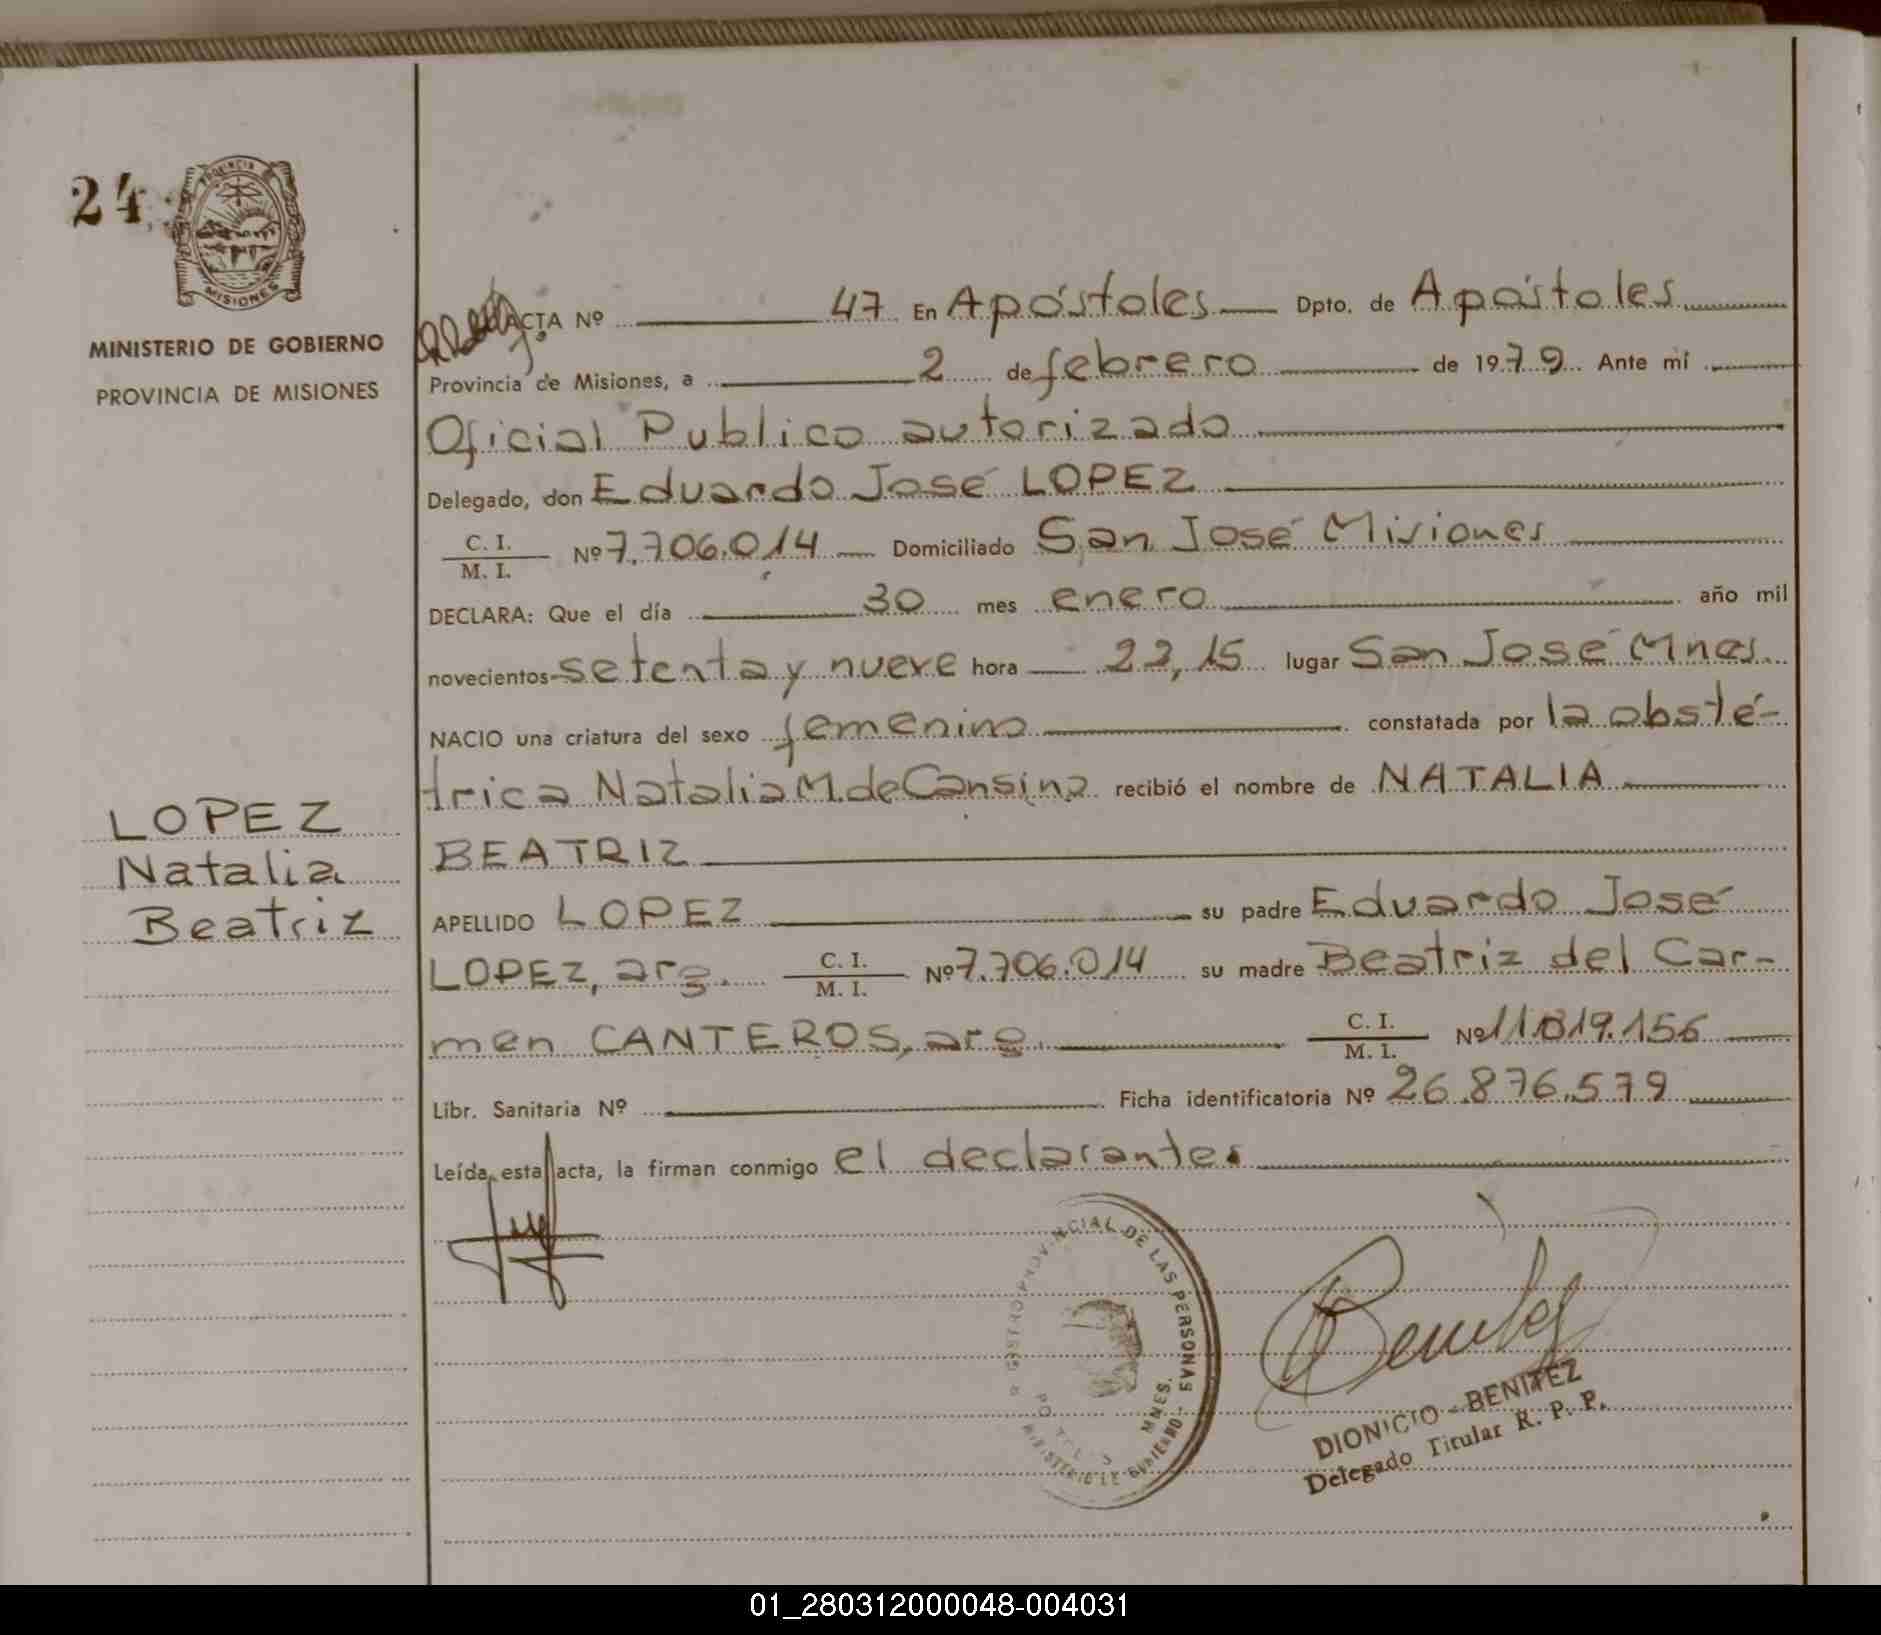 24
PROVINCIA
MISIONES
MINISTERIO DE GOBIERNO
PROVINCIA DE MISIONES
LOPEZ
Natalia
Beatriz
ACTA Nº 47 En Apóstoles Dpto. de Apóstoles
Provincia de Misiones, a 2 de febrero de 1979 Ante mí
Oficial Publico autorizado
Delegado, don Eduardo José LOPEZ
C. I.
M. I. Nº 7.706.014 Domiciliado San José Misiones
DECLARA: Que el día 30 mes enero año mil
novecientos setenta y nueve hora 22,15 lugar San José Mnes.
NACIO una criatura del sexo femenino constatada por la obsté-
trica Natalia M. de Cansino recibió el nombre de NATALIA
BEATRIZ
APELLIDO LOPEZ su padre Eduardo José
LOPEZ, arg. C. I.
M. I. Nº 7.706.014 su madre Beatriz del Car-
men CANTEROS, arg. C. I.
M. I. Nº 11.819.156
Libr. Sanitaria Nº Ficha identificatoria Nº 26.876.579
Leída esta acta, la firman conmigo el declarante.
PROVINCIAL DE LAS PERSONAS
MNES.
MINISTERIO DE GOBIERNO
Benitez
DIONICIO BENITEZ
Delegado Titular R. P. P.
01_280312000048-004031